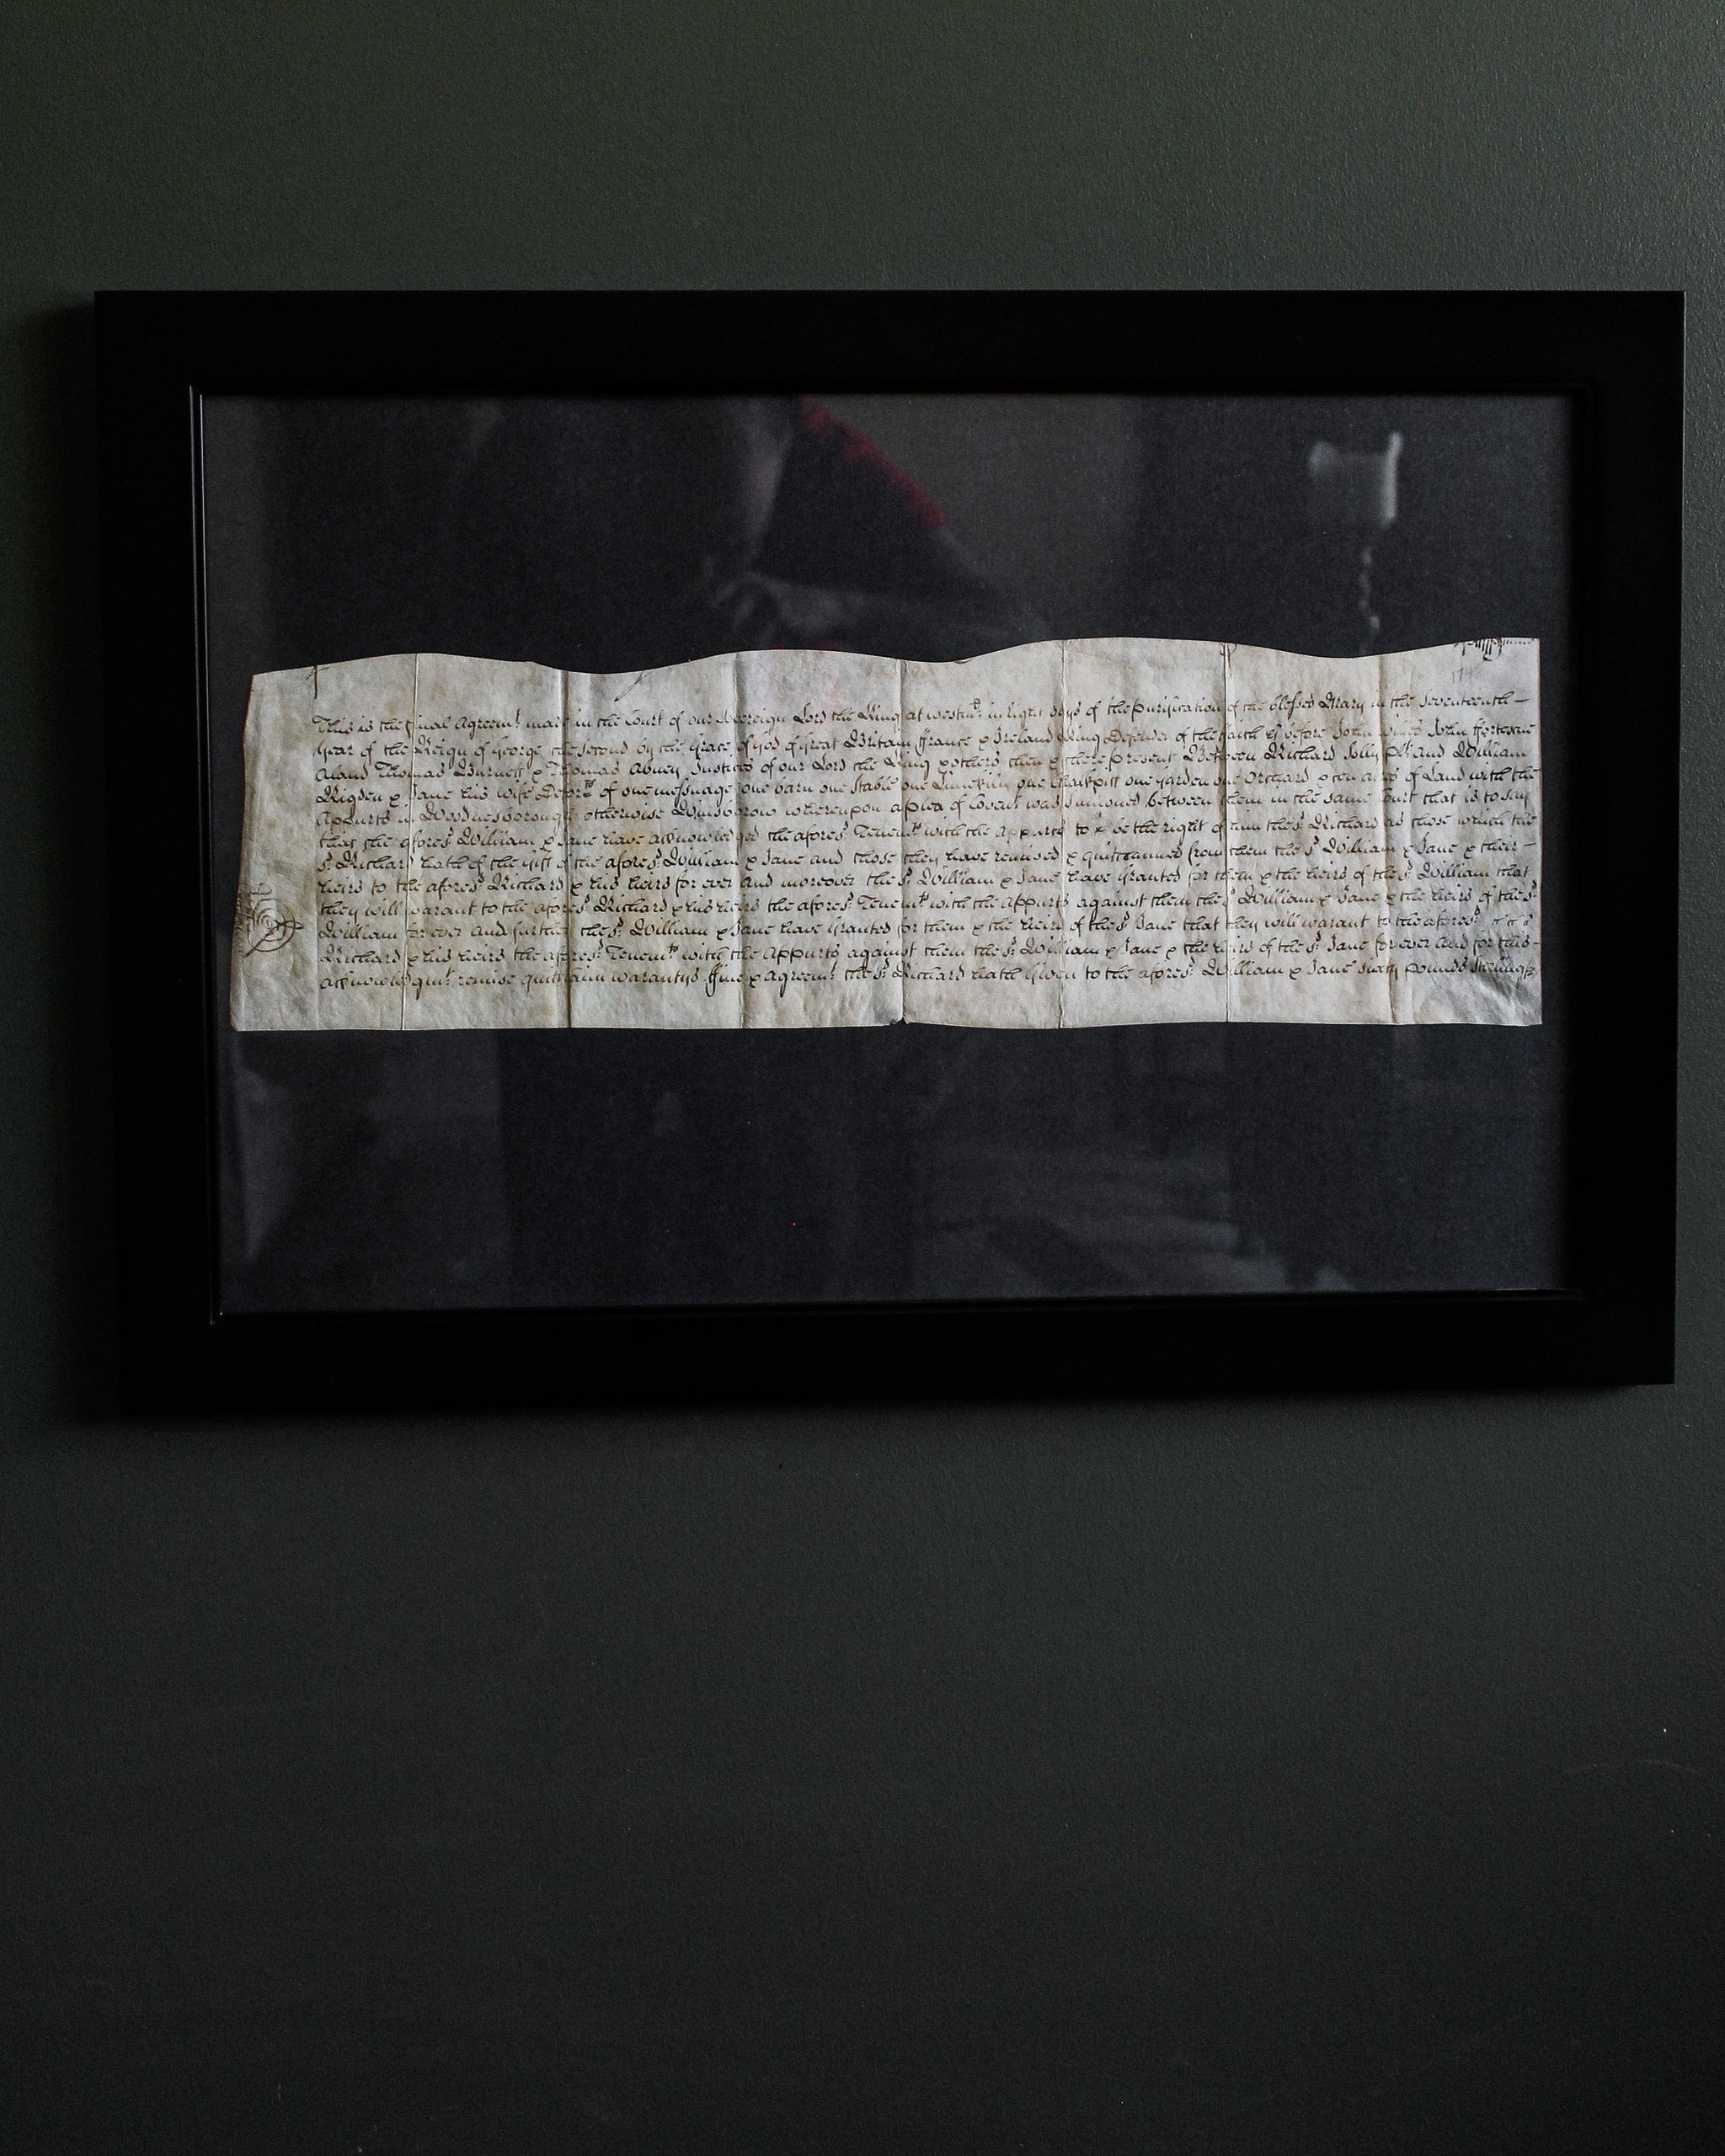 This is the final Agreemt made in the Court of our Sovereign Lord the King at Westmr in Eight days of the Purification of the blessed Mary in the Seventeenth
Year of the Reign of George the second by the Grace of God of Great Britain ffrance & Ireland King Defender of the faith &c before John Willes John ffortescue
Aland Thomas Burnett & Thomas Abney Justices of our Lord the King & others then & there present Between Richard Solly Plt and William
Rigden & Jane his wife Deforts of one messuage one barn one Stable one one Chalkpitt one garden one Orchard & ten acres of Land with the
Appurts in Woodnesborough otherwise Winsborow whereupon a plea of Covent was summoned between them in the same Court that is to say
that the aforesd William & Jane have acknowledged the aforesd Tenemts with the Appurts to be the right of him the sd Richard as those which the
sd Richard hath of the gift of the aforesd William & Jane and those they have remised & quitclaimed from them the sd William & Jane & their
heirs to the aforesd Richard & his heirs for ever And moreover the sd William & Jane have Granted for them & the heirs of the sd William that
they will warant to the aforesd Richard & his heirs the aforesd Tenemts with the Appurts against them the sd William & Jane & the heirs of the sd
William for ever and further the sd William & Jane have Granted for them & the heirs of the sd Jane that they will warant to the aforesd
Richard & his heirs the aforesd Tenemts with the Appurts against them the sd William & Jane & the heirs of the sd Jane for ever And for this
acknowledgmt remise quitclaim warantys ffine & agreemt the sd Richard hath Given to the aforesd William & Jane sixty pounds Sterling